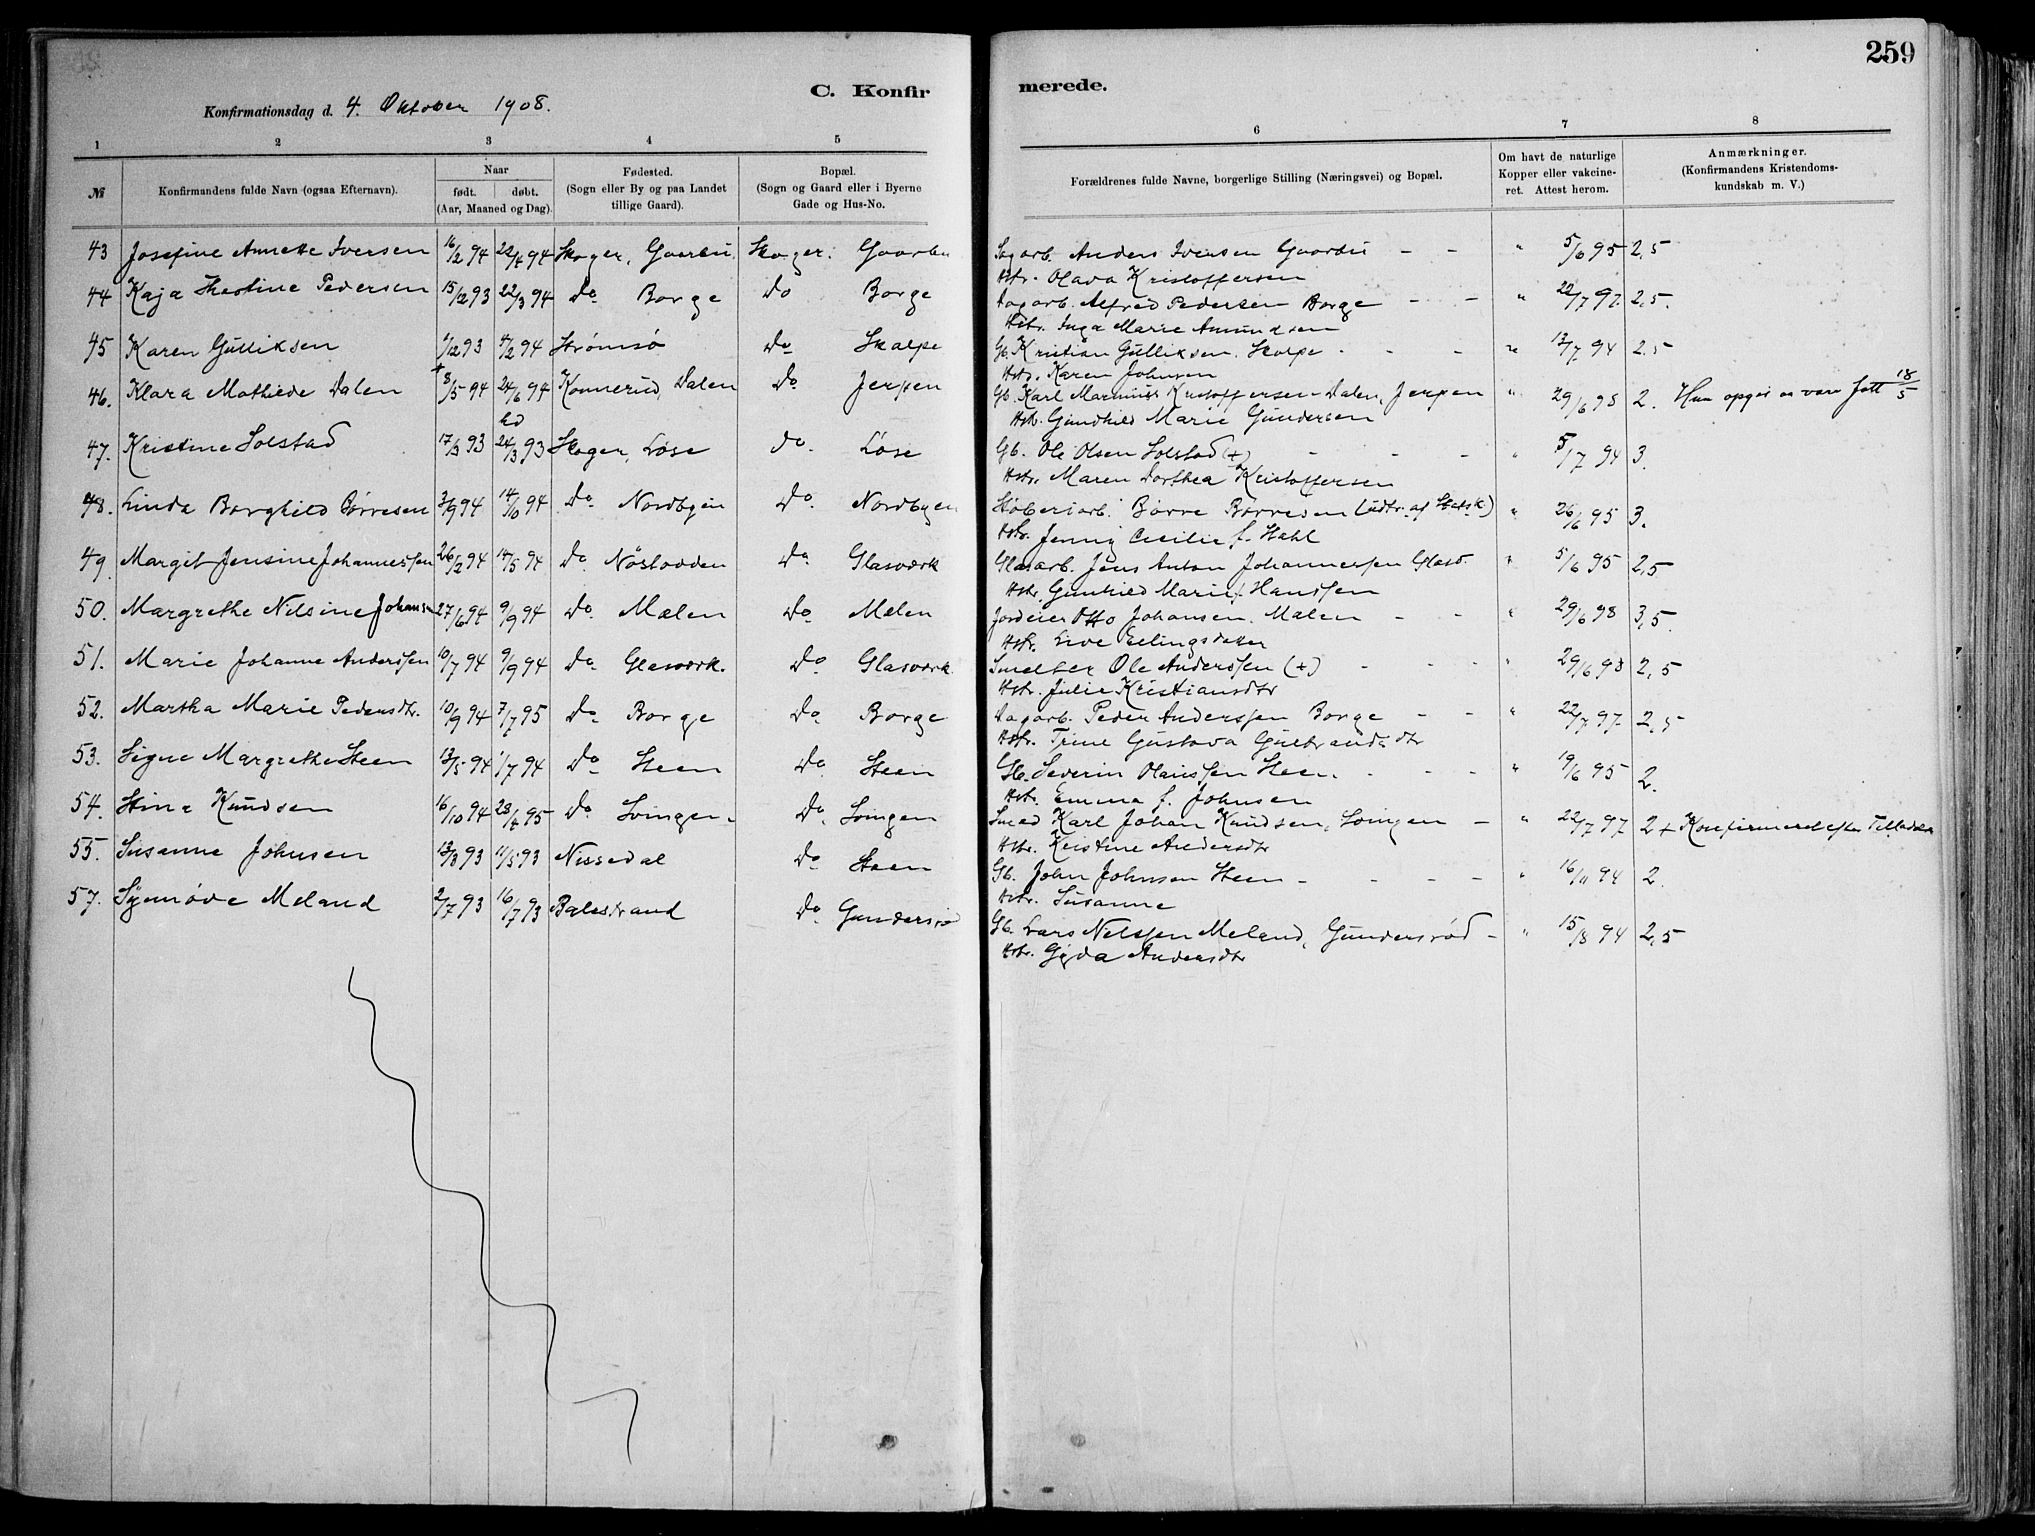 259
C. Konfir merede.
Konfirmationsdag d. 4. Oktober 1908.
1 2 3 4 5 6 7 8
№ Konfirmandens fulde Navn (ogsaa Efternavn). Naar født. døbt. (Aar, Maaned og Dag). Fødested. (Sogn eller By og paa Landet tillige Gaard). Bopæl. (Sogn og Gaard eller i Byerne Gade og Hus-No. Forældrenes fulde Navne, borgerlige Stilling (Næringsvei) og Bopæl. Om havt de naturlige Kopper eller vakcineret. Attest herom. Anmærkninger. (Konfirmandens Kristendomskundskab m. V.)
43 Josefine Annette Iversen 16/2 94 22/4 94 Skoger, Gaarbu. Skoger. Gaarbu Sagarb. Anders Iversen Gaarbu - - " 5/6 95 2,5
Hstr. Olava Kristoffersen
44 Kaja Kastine Pedersen 15/12 93 22/3 94 Do Borge Do Borge Dagarb. Alfred Pedersen Borge - - " 22/7 97. 2,5.
Hstr. Inga Marie Amundsen
45 Karen Gulliksen 4/2 94 Strømsø Do Skalpe Gb. Kristian Gulliksen. Skalpe - - - " 17/7 94 2.5
Hstr. Karen Johnsen
46. Klara Mathilde Dalen 8/5 94 24/6 94 Konnerud, Dalen Do Jerpen Gb. Karl Marinius Kristoffersen Dalen, Jerpen " 29/6 98 2. Hun opgir at være født 18/5
Hstr. Gundhild Marie Gundersen
47. Kristine Solstad 17/3 93 24/3 93 Skoger, Løse do. Løse Gb. Ole Olsen Solstad (+) - - - " 5/7 94 3.
Hstr. Maren Dorthea Kristoffersen
48. Linda Borghild Børresen 3/9 94 14/10 94 Do Nordbyen Do Nordbyen Støberiarb. Børre Børresen (udtr. af Statsk) " 26/6 95 3.
Hstr. Jenny Cecilie f. Stahl
49. Margit Jensine Johannessen 26/2 94 14/5 94 Do Nøstodden Do Glasværk Glasarb. Jens Anton Johannessen Glasv. " 5/6 95 2,5
Hstr. Gunhild Marie f. Hanssen
50. Margrethe Nilsine Johansen 27/6 94 9/9 94 Do Mælen Do Mælen Jordeier Otto Johansen. Mælen - - " 29/6 98 3,5.
Hstr. Live Ellingsdatter
51. Marie Johanne Anderssen 10/7 94 9/9 94 Do Glasværk. Do Glasværk. Smelter Ole Anderssen (+) - - - " 29/6 98 2,5
Hstr. Julie Kristiansdtr
52. Martha Marie Pedersdtr. 10/9 94 7/7 95 Do Borge Do Borge Dagarb. Peder Anderssen Borge - - " 22/7 97. 2,5
Hstr. Trine Gustava Gulbrandsdtr
53. Signe Margrethe Steen 13/5 94 1/7 94 Do Steen Do Steen Gb. Severin Olaussen Steen. - - - " 19/6 95 2.
Hstr. Emma f. Johnsen
54. Stina Knudsen 16/10 94 28/4 95 Do Svingen. Do. Svingen Smed Karl Johan Knudsen, Svingen - " 22/7 97 2 + Konfirmeret efter Tilladelse
Hstr. Kristine Andersdtr
55. Susanne Johnsen 13/3 93 11/5 93 Nissedal Do Steen Gb. John Johnsen Steen - - - - " 16/11 94 2.
Hstr. Susanne
57. Synnøve Meland 2/7 93 16/7 93 Balestrand Do Gundersrød Gb. Lars Nelssen Meland, Gundersrød - " 15/8 94 2,5
Hstr. Gjøa Andersdtr